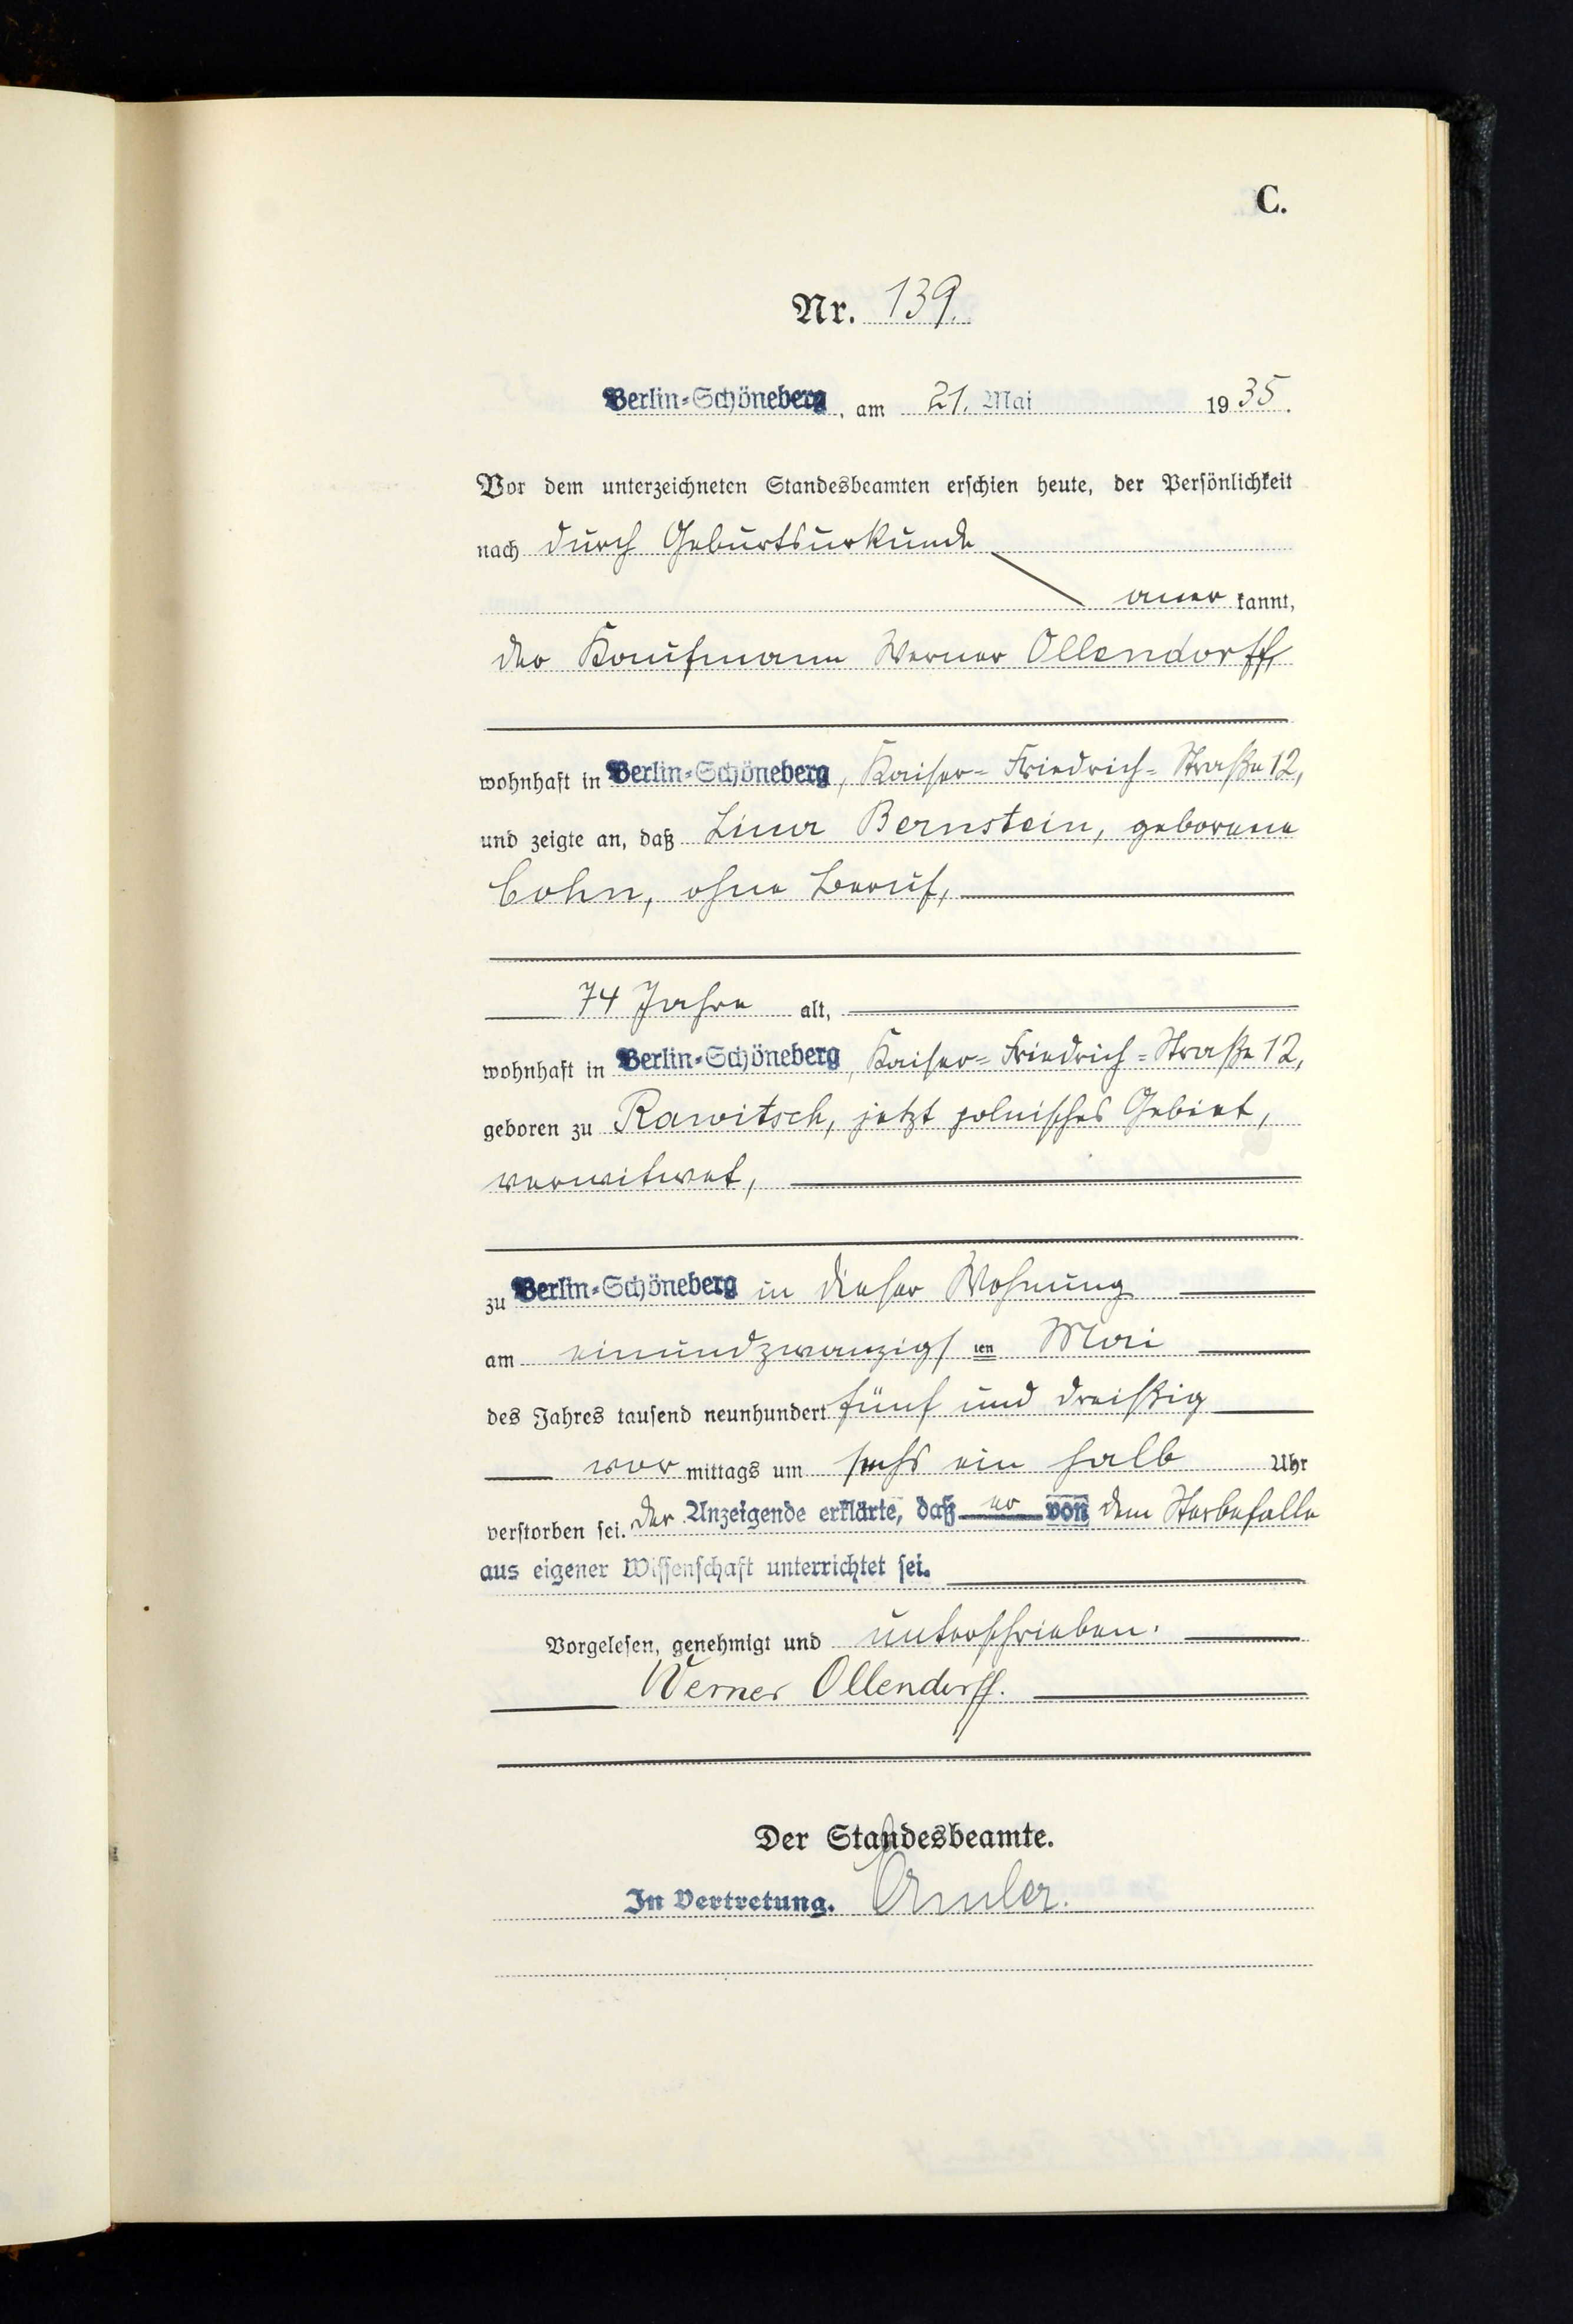 C.
Nr. 139.
Berlin-Schöneberg, am 21. Mai 1935.
Vor dem unterzeichneten Standesbeamten erschien heute, der Persönlichkeit
nach durch Geburtsurkunde
aner kannt,
der Kaufmann Werner Ollendorff,
wohnhaft in Berlin-Schöneberg, Kaiser-Friedrich-Straße 12,
und zeigte an, daß Lina Bernstein, geborene
Cohn, ohne Beruf,
74 Jahre alt,
wohnhaft in Berlin-Schöneberg, Kaiser-Friedrich-Straße 12,
geboren zu Rawitsch, jetzt polnisches Gebiet,
verwitwet,
zu Berlin-Schöneberg in dieser Wohnung
am einundzwanzigsten Mai
des Jahres tausend neunhundert fünf und dreißig
vor mittags um sechs ein halb Uhr
verstorben sei. Der Anzeigende erklärte, daß er von dem Sterbefalle
aus eigener Wissenschaft unterrichtet sei.
Vorgelesen, genehmigt und unterschrieben.
Werner Ollendorff.
Der Standesbeamte.
In Vertretung.